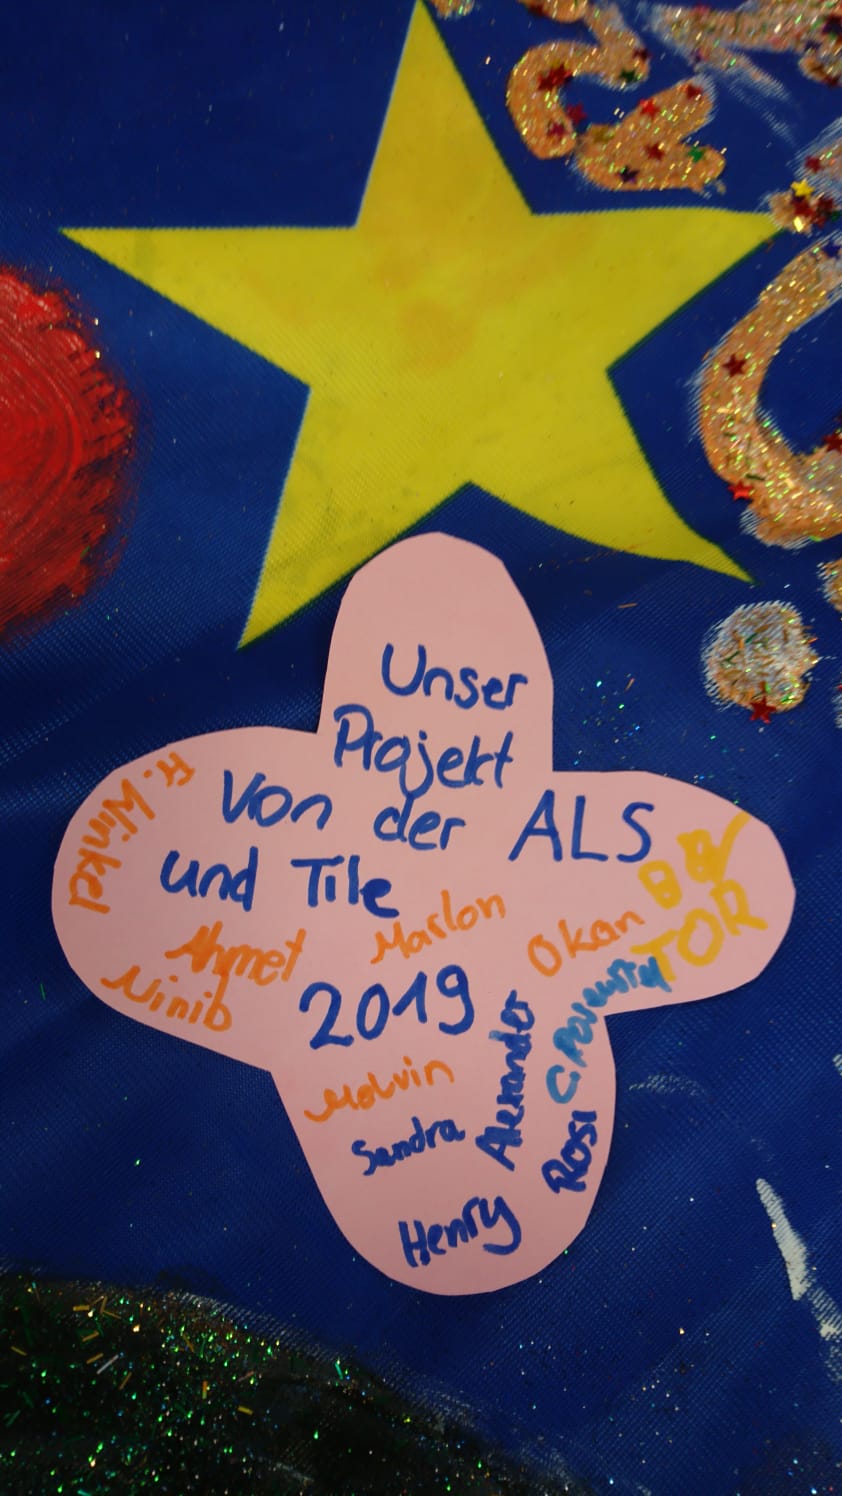 Unser
Projekt
von der ALS
und Tile
2019
Fr. Winkel
Ahmet
Ninib
Marlon
Okan
TOR
Melvin
Sandra
Alexander
Rosi
Henry